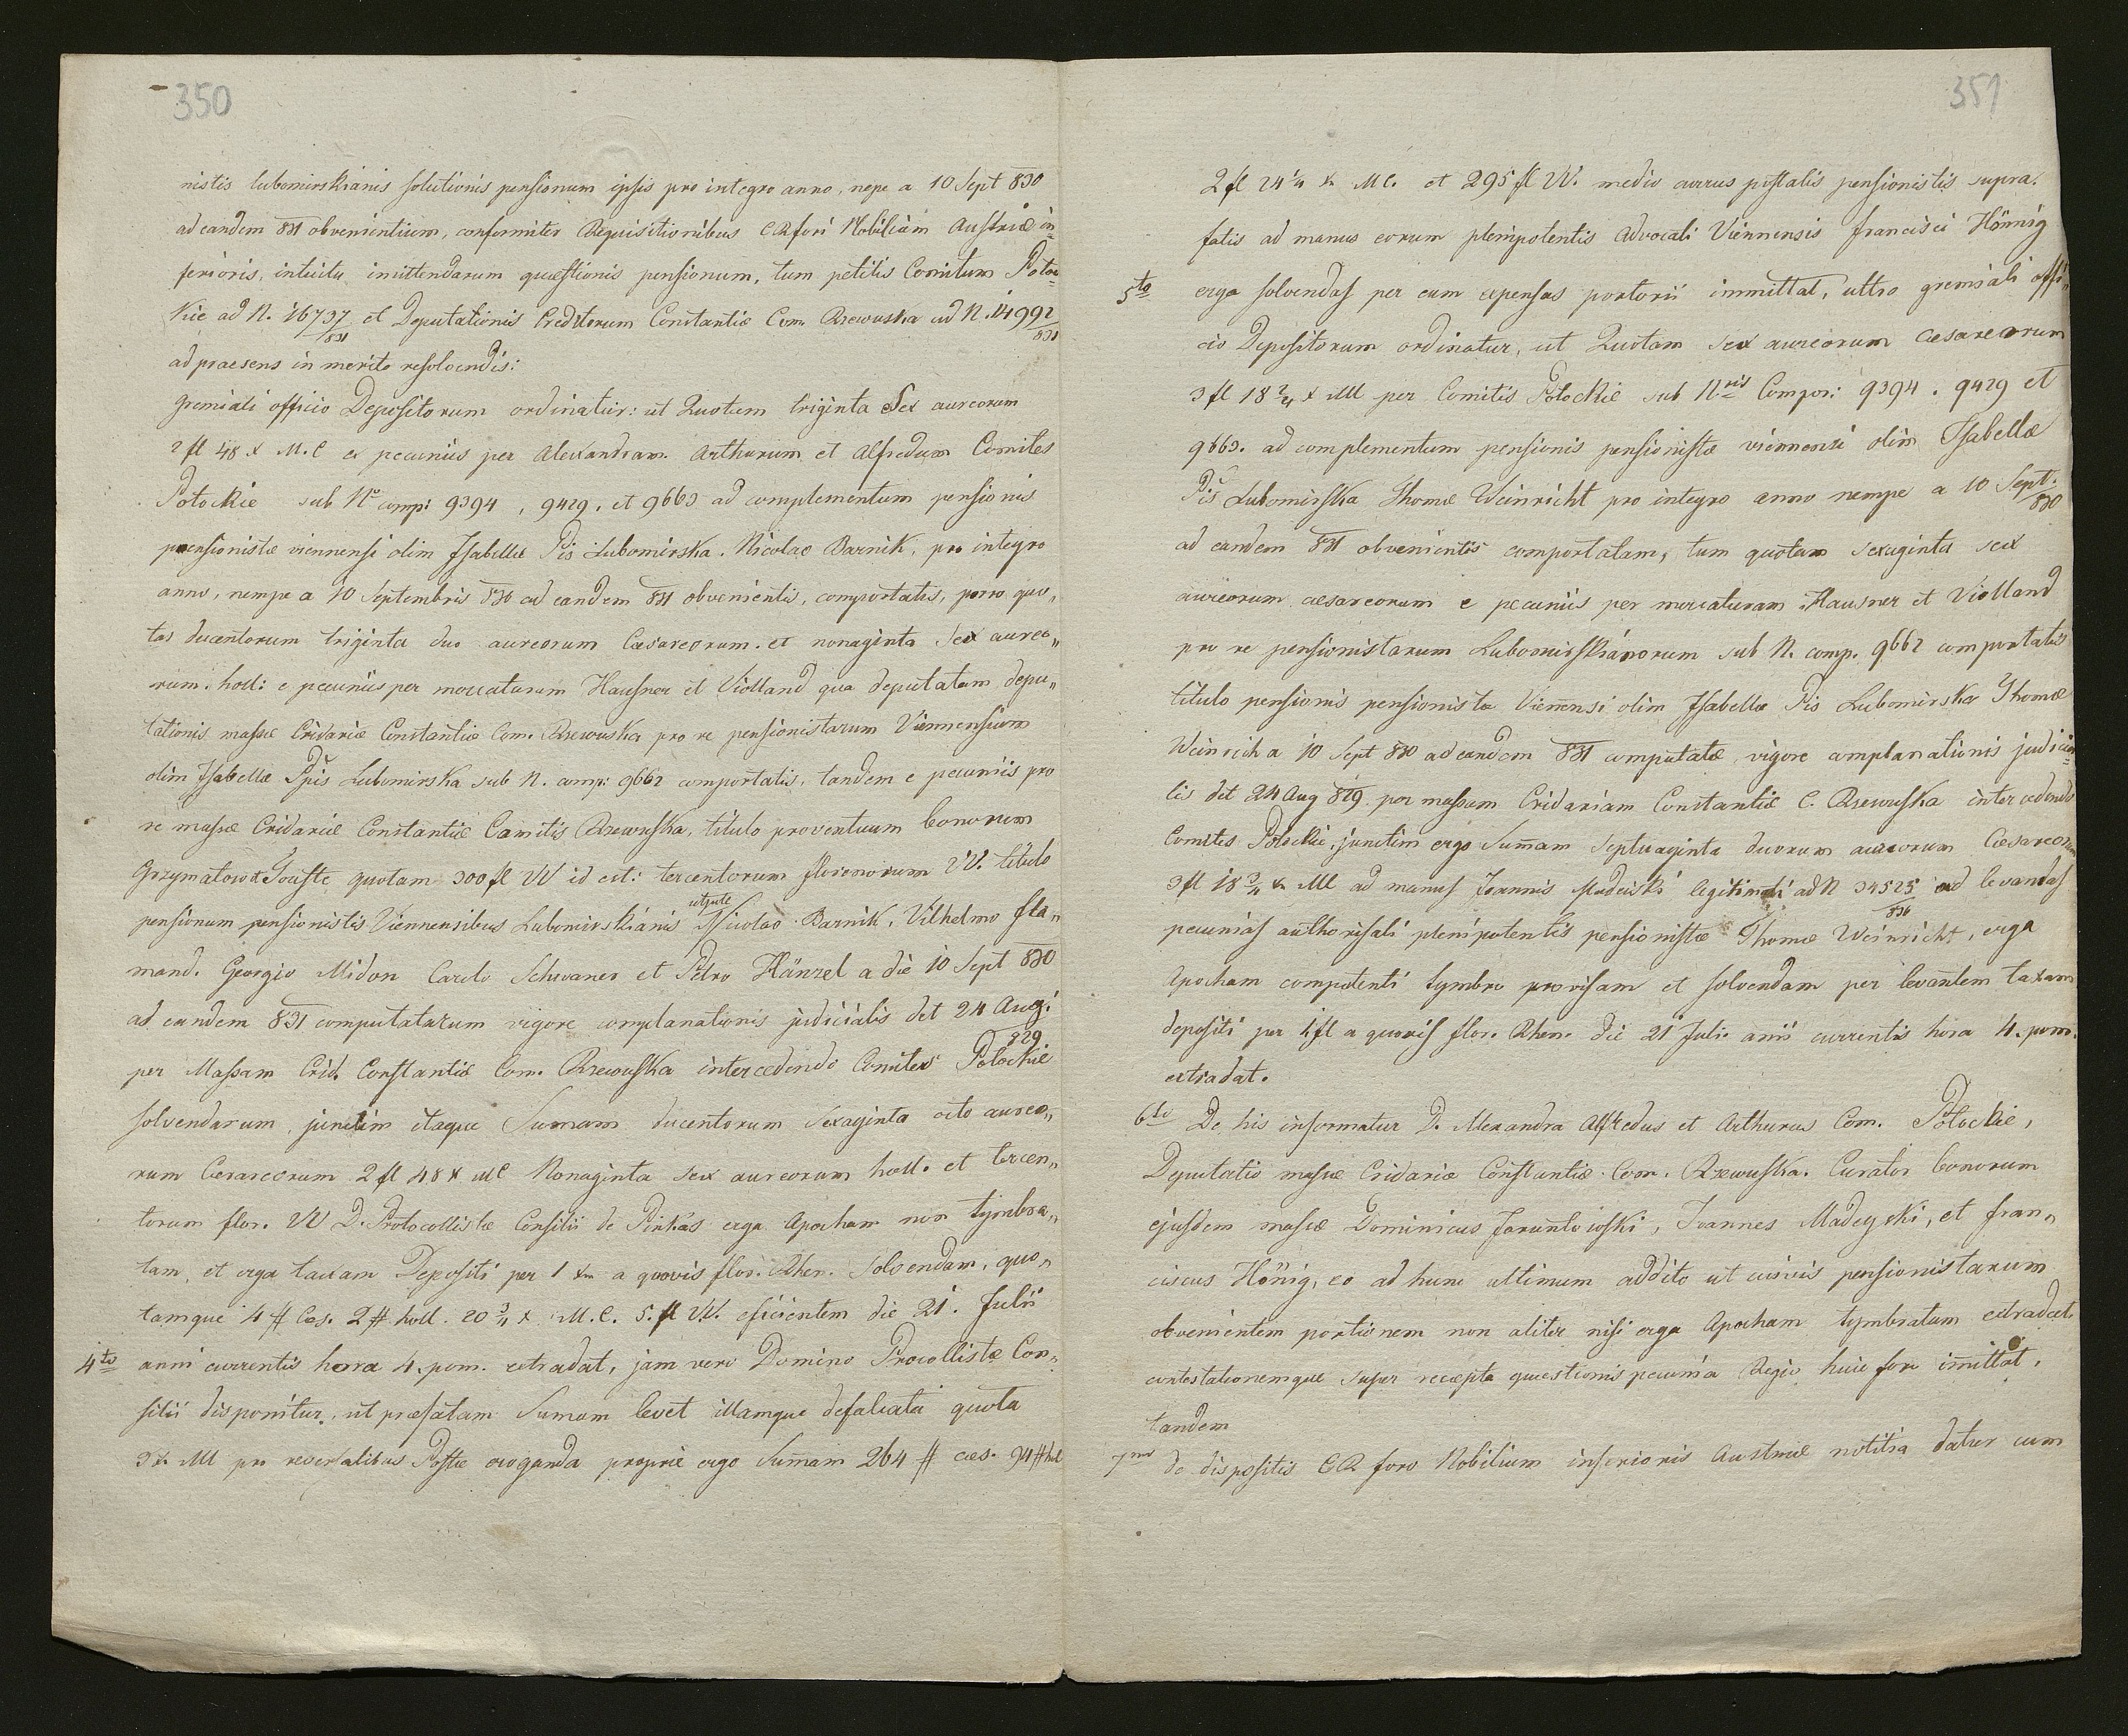 350
nistis lubomirskianis solutionis pensionum ipsis pro integro anno, nepe a 10 Sept 830
ad eandem 831 obvenientium, conformiter Requisitionibus CR fori Nobilium Austriæ in-
ferioris, intuitu inmittendarum quæstionis pensionum, tum petitis Comitum Poto-
kie ad N. 16737/831 et Deputationis Creditorum Constantiæ Com. Rzewuska ad N. 14992/831
ad praesens in merito resolvendis:
gremiali officio Depositorum ordinatur: ut Quotum triginta Sex aureorum
2 fl 48 x M.C ex pecuniis per Alexandram. Arthurum et Alfredum Comites
Potockie sub No comp: 9394, 9429. et 9663 ad complementum pensionis
pensionistæ viennensi olim Isabellæ Pis Lubomirska. Nicolao Barnik, pro integro
anno, nempe a 10 Septembris 830 ad eandem 831 obvenientis, comportatis, porro quo„
tas ducentorum triginta duo aureorum Cæsareorum. et nonaginta Sex aureo„
rum. holl: e pecuniis per mercaturam Hausner et Violland qua deputatam depu„
tationis massæ Cridariæ Constantiæ Com. Rzewuska pro re pensionistarum Viennensium
olim Isabellæ Ppis Lubomirska sub N. comp: 9662 comportatis, tandem e pecuniis pro
re massæ Cridariæ Constantiæ Comitis Rzewuska, titulo proventuum bonorum
Grzymatowa Touste quotam 300 fl W id est: tercentorum florenorum VV. titulo
pensionum pensionistis Viennensibus Lubomirskianis utpote Nicolao Barnik, Vilhelmo fla„
mand. Georgio Midon Carolo Schwaner et Petro Hänzel a die 10 Sept 830
ad eandem 831 computatarum vigore complanationis judicialis det 24 Aug: 829
per Massam Crid. Constantiæ Com. Rzewuska intercedendo Comites Potockie
solvendarum, junctim itaque Sumam ducentorum Sexaginta octo aureo„
rum Cæsareorum 2 fl 48 x MC Nonaginta sex aureorum holl. et tercen„
torum flor. W D. Protocollistæ Consilii de Pinkas erga Apocham non tymbra„
tam, et erga taxam Depositi per 1 xr a quovis flor. Rhen. Solvendam, quo„
tamque 4 # Ces. 2 # holl. 20 3/4 x M.C. 5. fl W. eficientem die 21. Julii
4to anni currentis hora 4. pom. extradat, jam vero Domino Procollistæ Con„
silii disponitur, ut præfatam Sumam levet illamque defalcata quota
3 x. M pro recepsalibus Postæ eroganda proprie ergo Sumam 264 # cæs. 94 # hol
351
2 fl 24 1/4 x MC. et 295 fl W. medio currus postalis pensionistis supra.
fatis ad manus eorum plenipotentis Advocati Viennensis francisci Hönnig
5to erga solvendas per eum expensas portorii immittat, ultro gremiali offi„
cio Depositorum ordinatur, ut Quotam sex aureorum Cæsareorum
3 fl 18 2/4 x M per Comitis Potockie sub Nris Compor: 9394. 9429 et
9663. ad complementum pensionis pensionistæ viennensi olim Isabellæ
Pis Lubomirska Thomæ Weinricht pro integro anno nempe a 10 Sept. 830
ad eandem 831 obvenientis comportatam, tum quotam sexaginta sex
aureorum cæsareorum e pecuniis per mercaturam Hausner et Violland
pro re pensionistarum Lubomirskianorum sub N. comp. 9662 comportatis
titulo pensionis pensionistæ Viennensi olim Isabellæ Pis Lubomirska Thomæ
Weinrich a 10 Sept 830 ad eandem 831 computatæ, vigore complanationis judicia„
lis det 24 Aug 829 per massam Cridariam Constantiæ C. Rzewuska intercedendo
Comites Potockie, junctim ergo Sumam Septuaginta duorum aureorum Cæsareorum
3 fl 18 3/4 x M ad manus Joannis Madeiski legitimati ad N 34525/830 ad levandas
pecunias authorisati plenipotentis pensionistæ Thomæ Weinricht, erga
Apocham competenti tymbro provisam et solvendam per levantem taxam
depositi per 1 fl a quovis flor. Rhen. die 21 Julii anni currentis hora 4. pom.
extradat.
6to De his informatur D. Alexandra Alfredus et Arthurus Com. Potockie,
Deputatio massæ Cridariæ Constantiæ Com. Rzewuska. Curator bonorum
ejusdem massæ Dominicus Jaruntowski, Joannes Madeyski, et fran„
ciscus Hönig, eo ad hunc ultimum addito ut cuivis pensionistarum
obvenientem portionem non aliter nisi erga Apocham tymbratam extradet
contestationemque super recepta quæstionis pecunia Regio huic foro imittat,
tandem
7mo de dispositis CR foro Nobilium inferioris Austriæ notitia datur cum